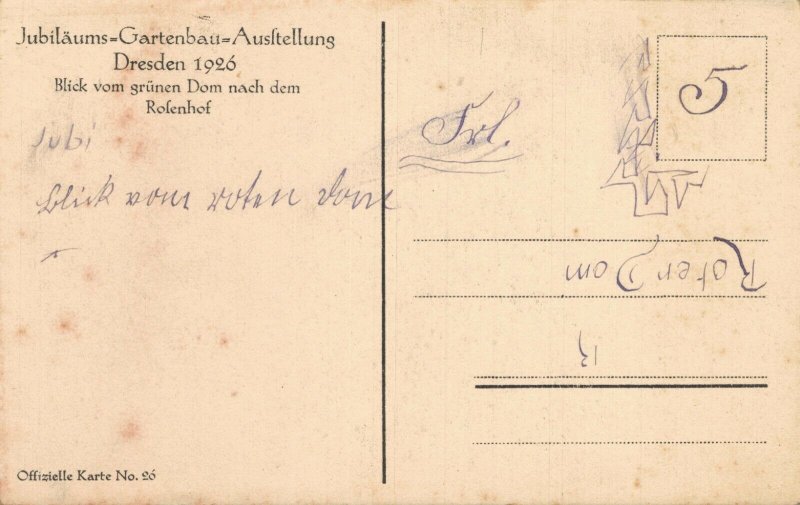 Jubiläums=Gartenbau=Ausſtellung
Dresden 1926
Blick vom grünen Dom nach dem
Roſenhof
Jubi
Blick vom roten Dom
Offizielle Karte No. 26
Frl.
5
Roter Dom